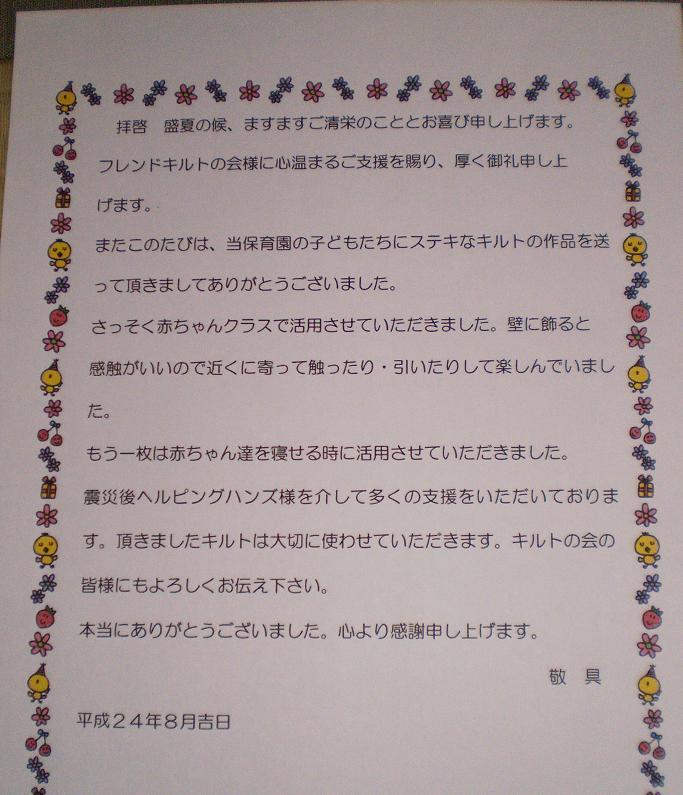 拝啓　盛夏の候、ますますご清栄のこととお喜び申し上げます。
フレンドキルトの会様に心温まるご支援を賜り、厚く御礼申し上
げます。
またこのたびは、当保育園の子どもたちにステキなキルトの作品を送
って頂きましてありがとうございました。
さっそく赤ちゃんクラスで活用させていただきました。壁に飾ると
感触がいいので近くに寄って触ったり・引いたりして楽しんでいまし
た。
もう一枚は赤ちゃん達を寝せる時に活用させていただきました。
震災後ヘルピングハンズ様を介して多くの支援をいただいておりま
す。頂きましたキルトは大切に使わせていただきます。キルトの会の
皆様にもよろしくお伝え下さい。
本当にありがとうございました。心より感謝申し上げます。
敬　具
平成２４年８月吉日